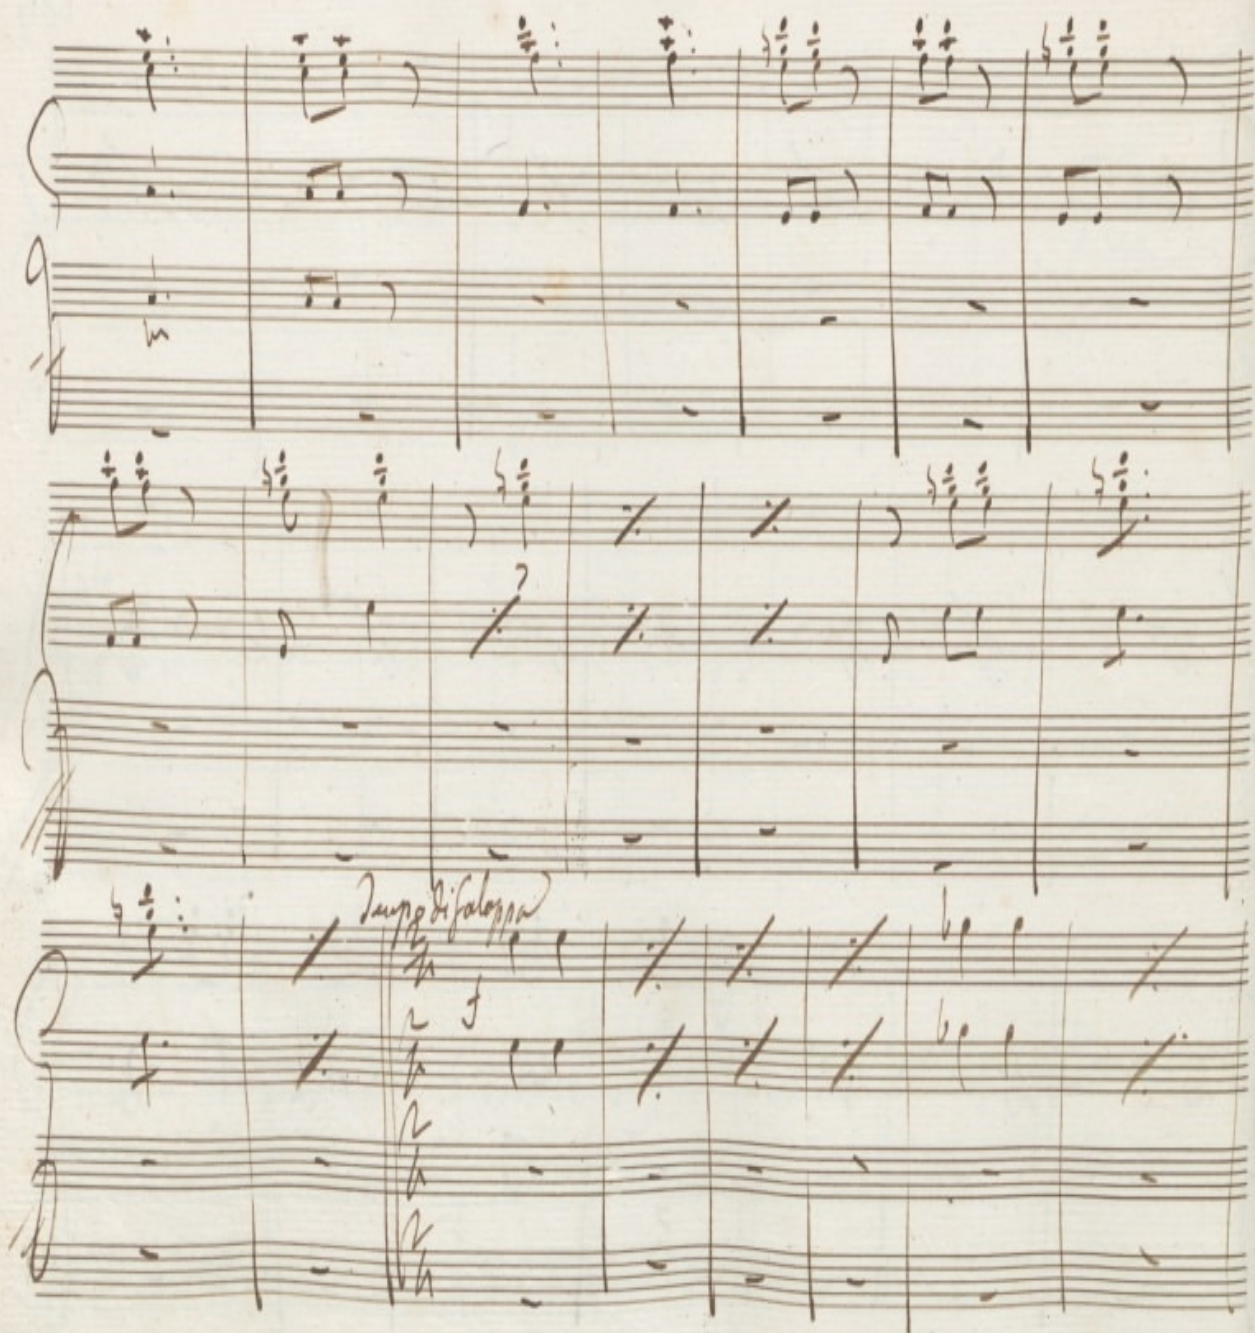 Tempo di Galoppo
f